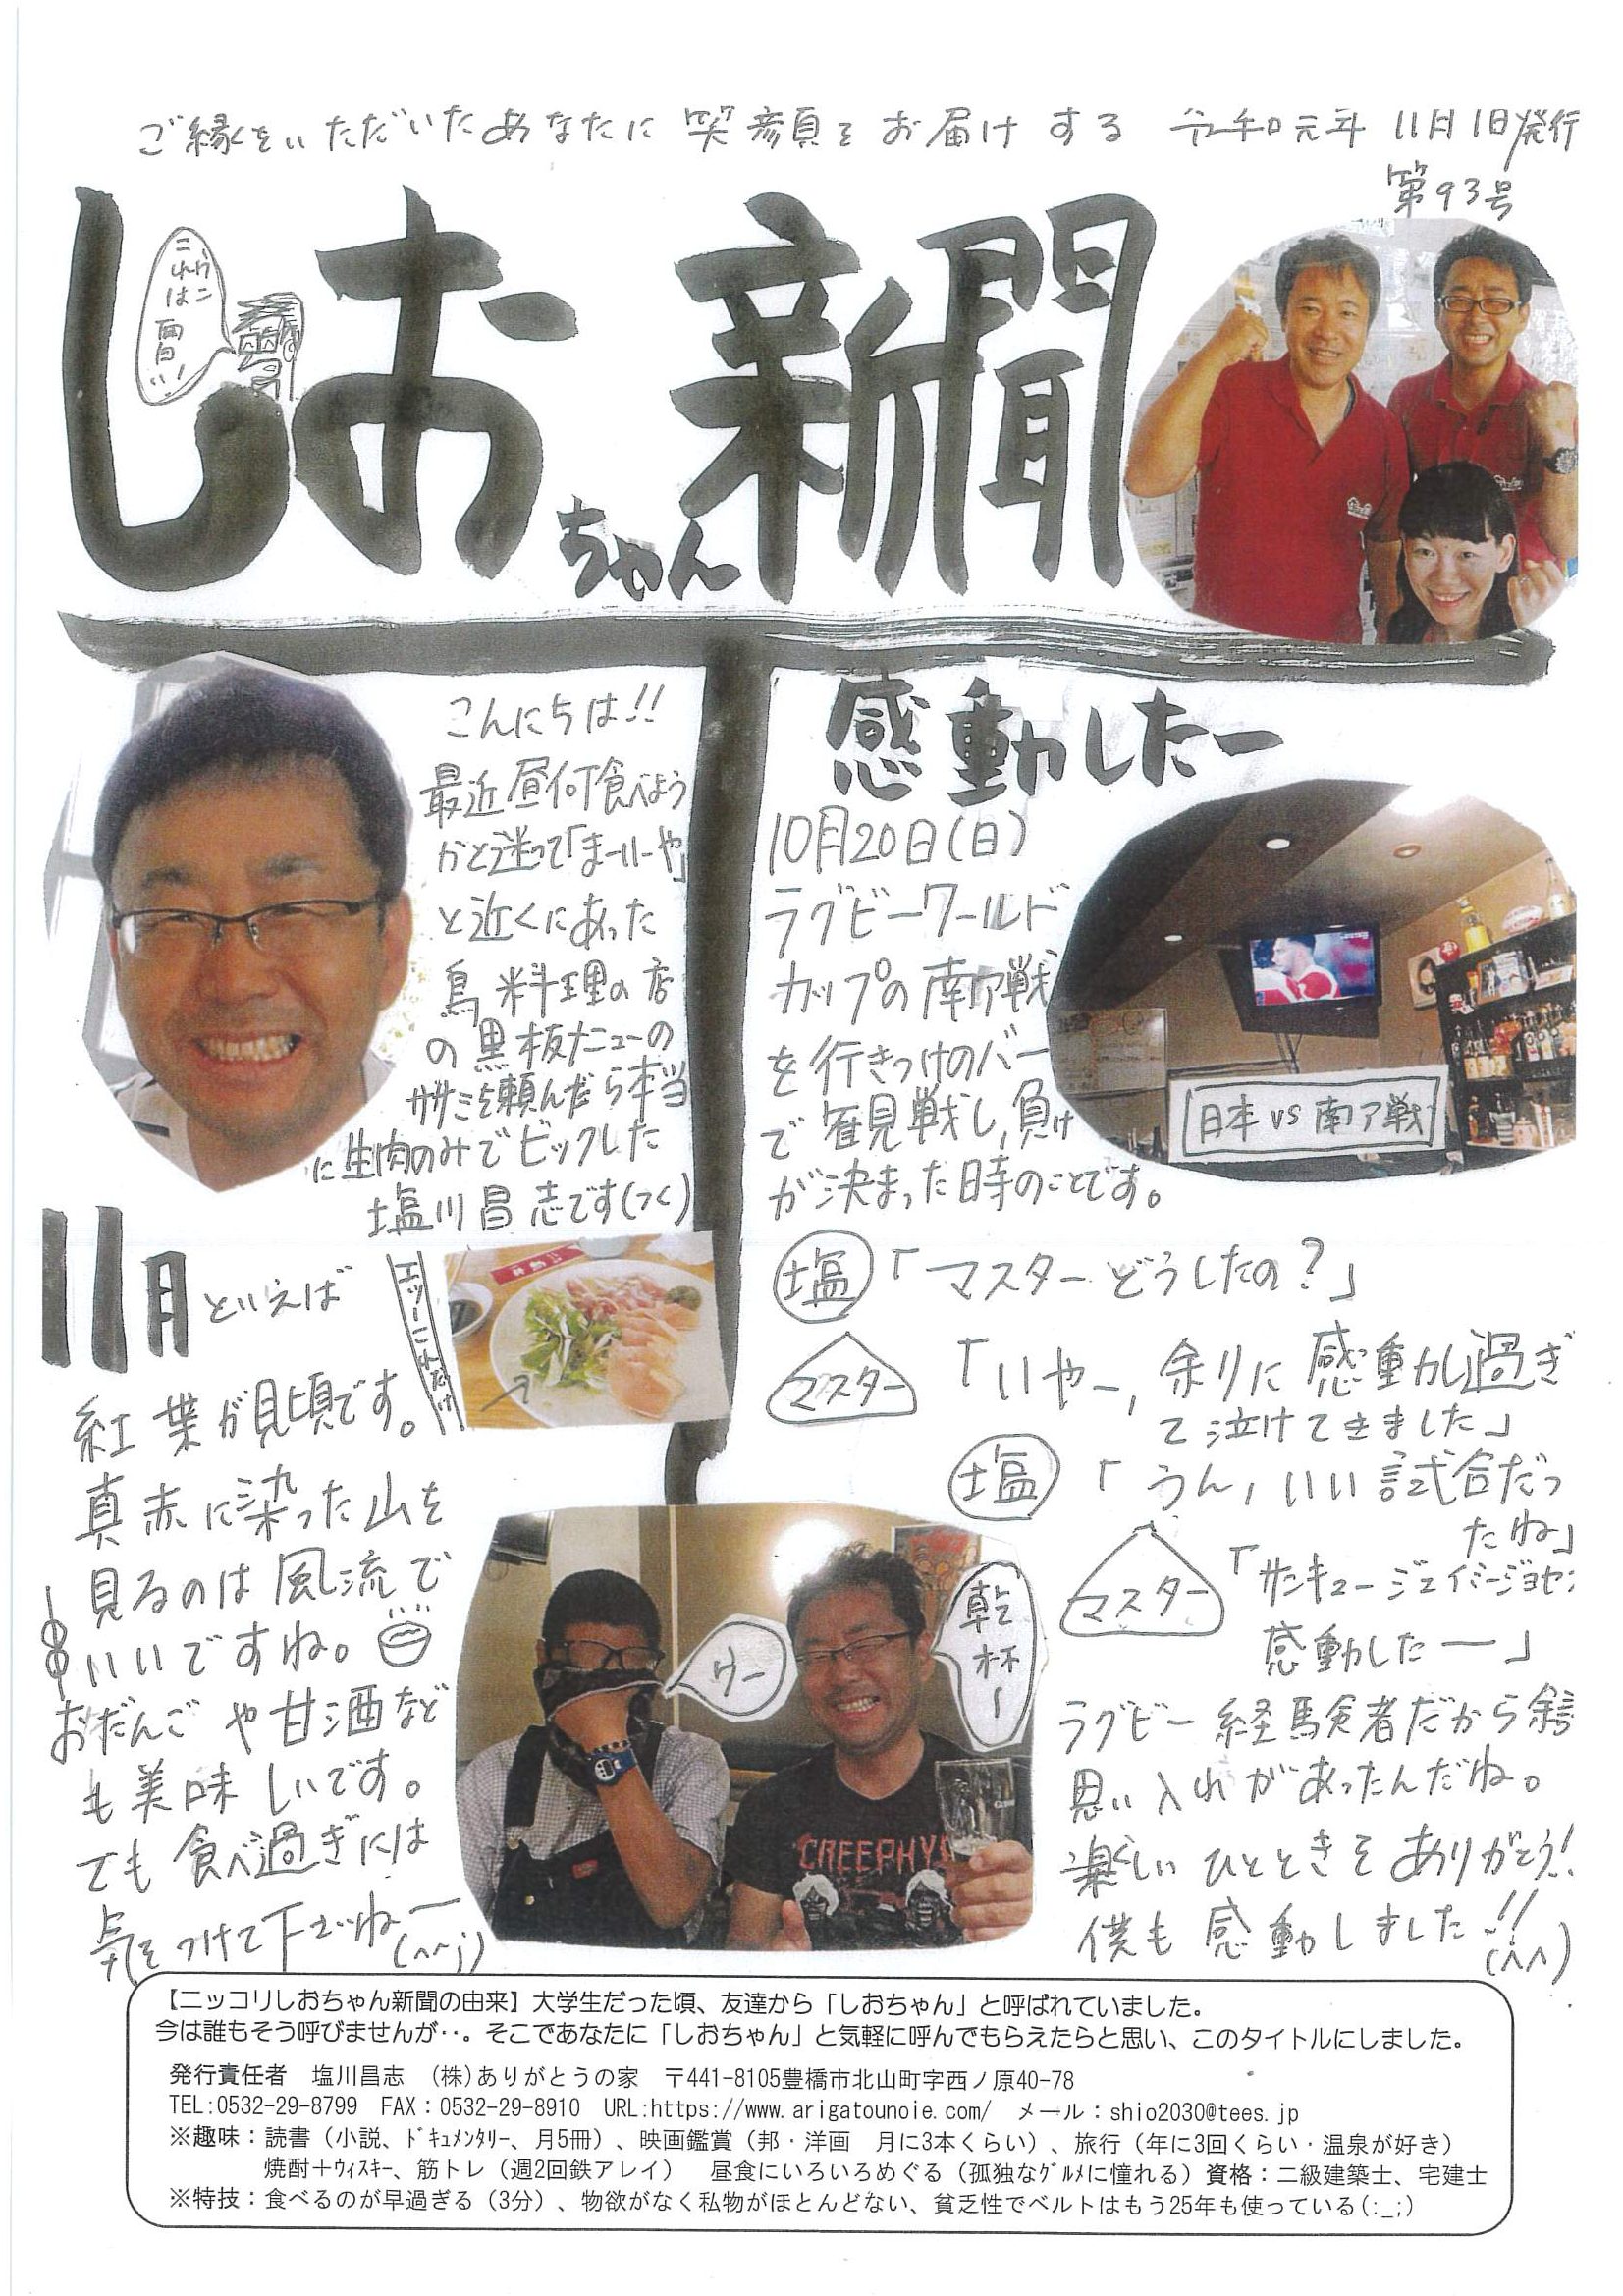 ご縁をいただいたあなたに笑顔をお届けする 令和元年 11月1日発行
第93号
しおちゃん新聞
こんにちは!!
最近昼何食べよう
かと迷って「まーいーや」
と近くにあった
鳥料理の店
の黒板メニューの
ササミを頼んだら本当
に生肉のみでビックした
塩川昌志です(つく)
エッーこれだけ
11月といえば
紅葉が見頃です。
真赤に染った山を
見るのは風流で
いいですね。
おだんごや甘酒など
も美味しいです。
でも食べ過ぎには
気をつけて下さいねー
(^^j)
感動したー
10月20日(日)
ラグビーワールド
カップの南ア戦
を行きつけのバー
で観戦し、負け
が決まった時のことです。
日本 VS 南ア戦
塩「マスターどうしたの?」
マスター「いやー, 余りに感動し過ぎ
て泣けてきました」
塩「うん, いい試合だっ
たね」
マスター「サンキュージェイミージョセフ
感動したー」
ウー
乾杯ー
ラグビー経験者だから余計
思い入れがあったんだね。
楽しいひとときをありがとう!
僕も感動しました!!
(^^)
【ニッコリしおちゃん新聞の由来】大学生だった頃、友達から「しおちゃん」と呼ばれていました。
今は誰もそう呼びませんが‥。そこであなたに「しおちゃん」と気軽に呼んでもらえたらと思い、このタイトルにしました。
発行責任者 塩川昌志 (株)ありがとうの家 〒441-8105豊橋市北山町字西ノ原40-78
TEL:0532-29-8799 FAX:0532-29-8910 URL:https://www.arigatounoie.com/ メール:shio2030@tees.jp
※趣味:読書(小説、ドキュメンタリー、月5冊)、映画鑑賞(邦・洋画 月に3本くらい)、旅行(年に3回くらい・温泉が好き)
焼酎+ウィスキー、筋トレ(週2回鉄アレイ) 昼食にいろいろめぐる(孤独なグルメに憧れる)資格:二級建築士、宅建士
※特技:食べるのが早過ぎる(3分)、物欲がなく私物がほとんどない、貧乏性でベルトはもう25年も使っている(:_;)